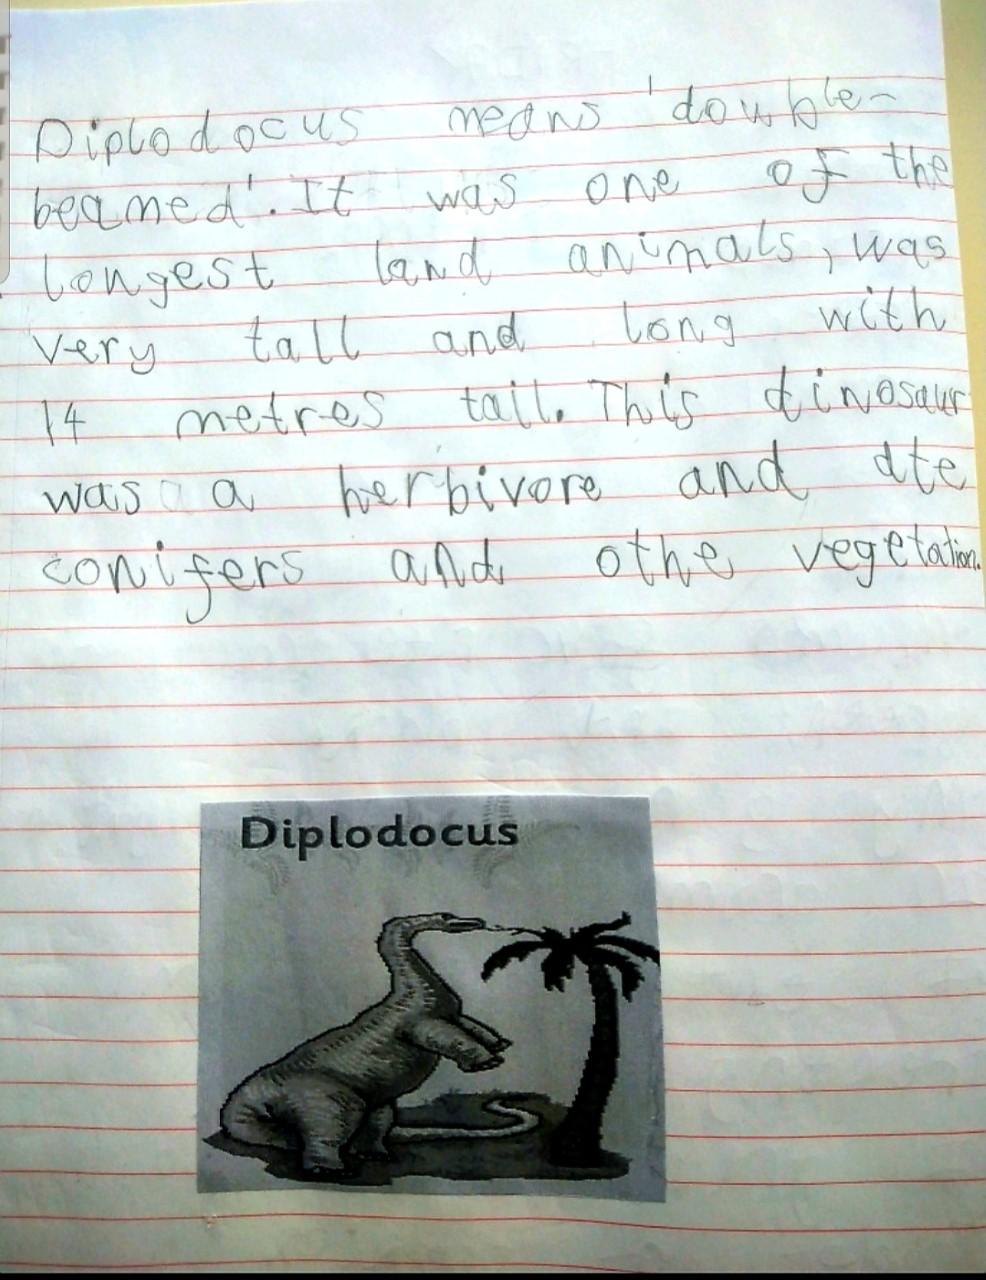 Diplodocus means 'double-
beamed'. It was one of the
longest land animals, was
very tall and long with
14 metres tail. This dinosaur
was a herbivore and ate
conifers and othe vegetation.
Diplodocus